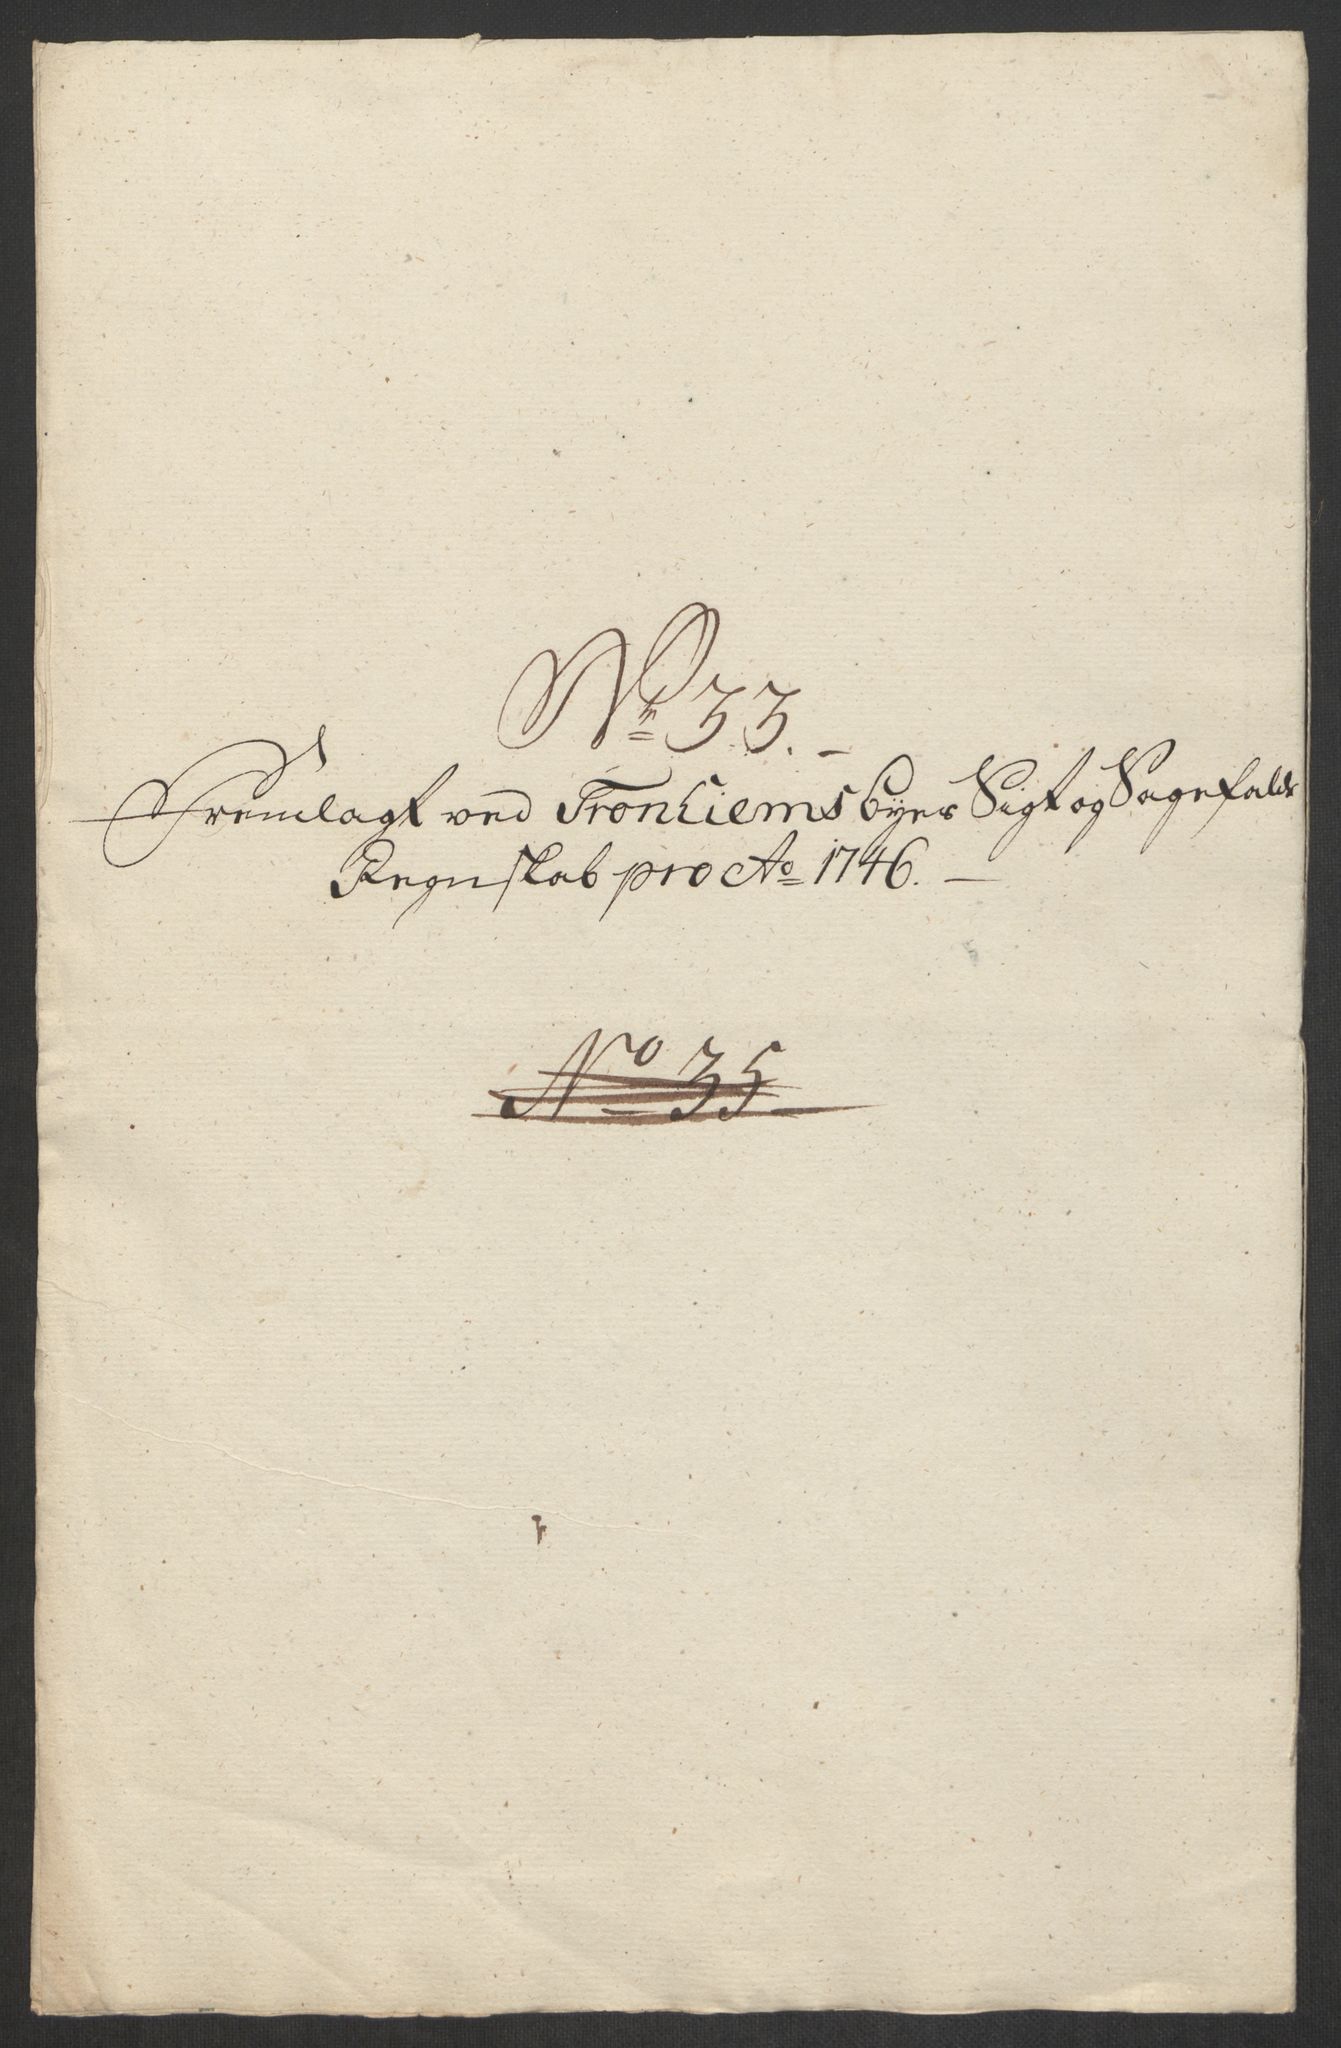 No 33.
Fremlagt ved Tronhiems byes Sigt og Sagefalds
Regnskab pro Ao 1746.
No 35